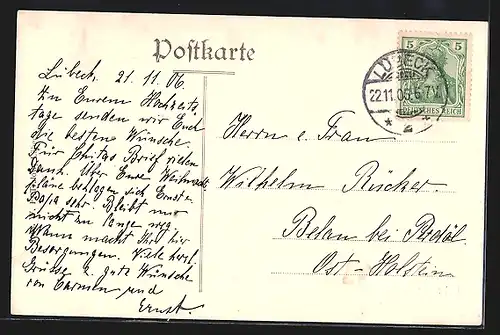 Postkarte
Lübeck, 21.11.06.
Zu Eurem Hochzeits
tage senden wir Euch
die besten Wünsche.
Für Brief vielen
Dank. Über Eure Weihnachts
pläne beklagen sich Ernst u.
Papa sehr. Bleibt nur
nicht zu lange weg.
Wann macht Ihr hier
Besorgungen. Viele herzl.
Grüsse u. gute Wünsche
von Carmen und
Ernst.
5 5
DEUTSCHES REICH
LÜBECK
22.11.06.
* 2 *
Herrn u. Frau
Wilhelm Rücker.
bei
Ost-Holstein